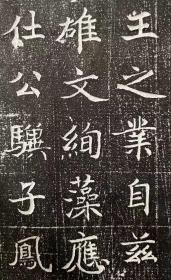 王之業自兹
雄文絢藻應
仕公驥子鳳